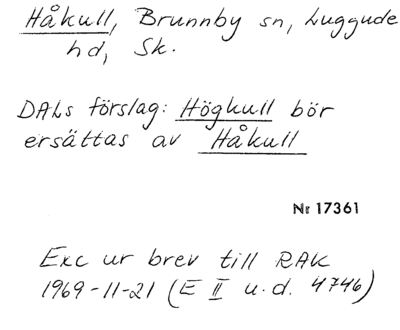 Håkull, Brunnby sn, Luggude
hd, Sk.
DALs förslag: Högkull bör
ersättas av Håkull
Nr 17361
Exc ur brev till RAK
1969-11-21 (E II u.d. 4746)